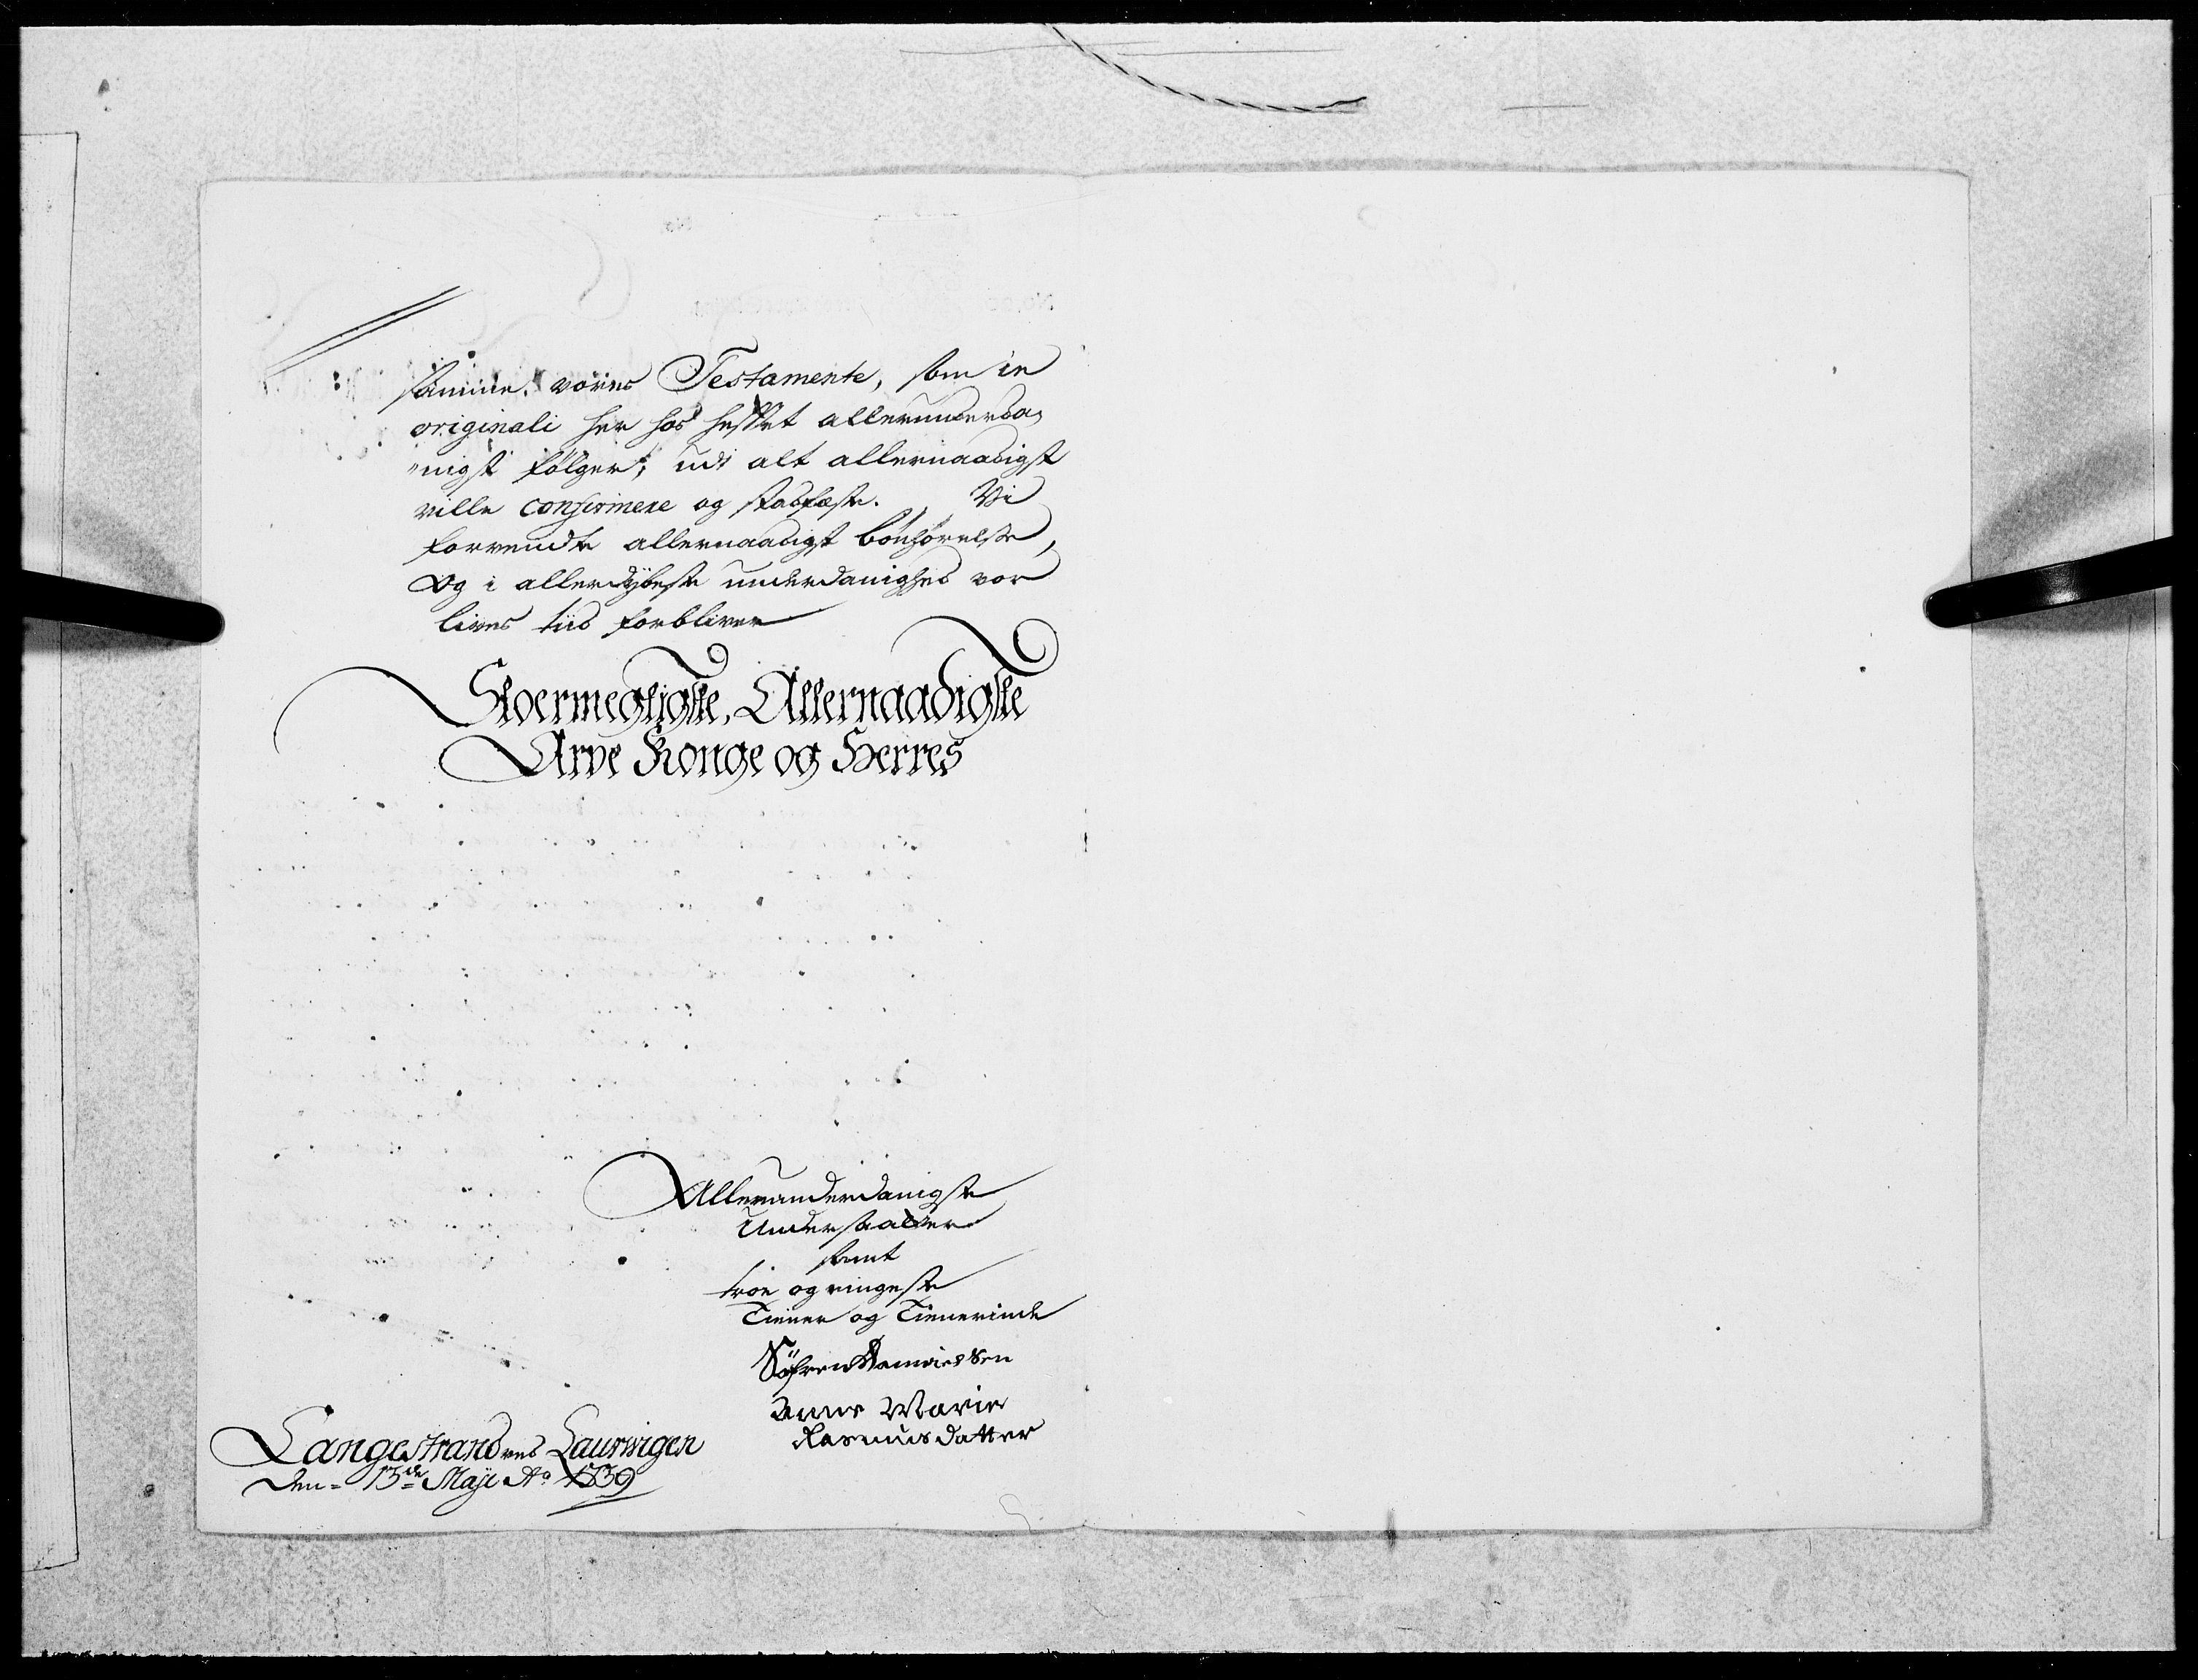 samme vores Testamente, som in
originali her hos hefftet allerunderda,
„nigst følger, udi alt allernaadigst
ville confirmere og stadfæste. Vi
forvendte allernaadigst bönhörelse,
og i allerdybeste underdanighed vor
lives tiid forbliver
Stoermegtigste, Allernaadigste
Arve Konge og Herres
Allerunderdanigste
Undersaatter
samt
troe og ringeste
Tiener og Tienerinde
Söfren
Anne Marie
Rasmusdatter
Langestrand ved Laurwigen
den = 13de Maji Ao 1739